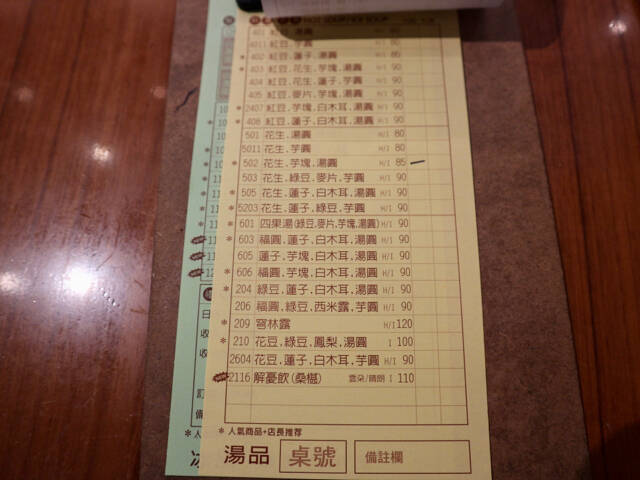 HOT SOUP/ICE SOUP
401 紅豆.湯圓 H/I 80
4011 紅豆.芋圓 H/I 80
* 402 紅豆.蓮子.湯圓 H/I 85
* 403 紅豆.花生.芋塊.湯圓 H/I 90
404 紅豆.花生.蓮子.芋圓 H/I 90
405 紅豆.麥片.芋塊.湯圓 H/I 90
* 2407 紅豆.芋塊.白木耳.湯圓 H/I 90
* 408 紅豆.蓮子.白木耳.湯圓 H/I 90
501 花生.湯圓 H/I 80
5011 花生.芋圓 H/I 80
* 502 花生.芋塊.湯圓 H/I 85
503 花生.綠豆.麥片.芋圓 H/I 90
* 505 花生.蓮子.白木耳.湯圓 H/I 90
* 5203 花生.蓮子.綠豆.芋圓 H/I 90
* 601 四果湯(綠豆.麥片.芋塊.湯圓) H/I 90
* 603 福圓.蓮子.白木耳.湯圓 H/I 90
605 蓮子.芋塊.白木耳.湯圓 H/I 90
* 606 福圓.芋塊.白木耳.湯圓 H/I 90
* 204 綠豆.蓮子.白木耳.湯圓 H/I 90
206 福圓.綠豆.西米露.芋圓 H/I 90
* 209 窖林露 H/I 120
* 210 花豆.綠豆.鳳梨.湯圓 I 100
2604 花豆.蓮子.白木耳.芋圓 H/I 90
2116 解憂飲(桑椹) 雲朵/晴朗 I 110
* 人氣商品+店長推荐
湯品 桌號 備註欄